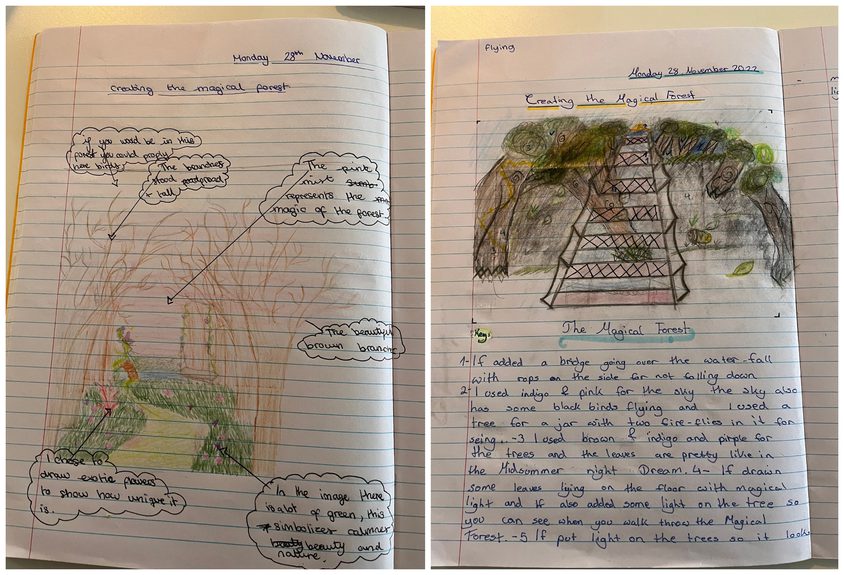 Monday 28th November
creating the magical forest
if you would be in this
forest you could proply
here birds.
The branches
stood
+ tall
The pink
mist
represents the
magic of the forest
The beautiful
brown branches
I chose to
draw exotic flowers
to show how unique it
is.
In the image there
is alot of green, this
simbolices calmnes
beauty and
nature.
flying
Monday 28, November 2022
Creating the Magical Forest
Key:
The Magical Forest
1- If added a bridge going over the water-fall
with rops on the side for not falling down
2- I used indigo & pink for the sky the sky also
has some black birds flying and I used a
tree for a jar with two fire-flies in it for
seing.. -3 I used brown & indigo and pirple for
the trees and the leaves are pretty like in
the Midsummer night Dream. 4- If drawn
some leaves lying on the floor with magical
light and If also added some light on the tree so
you can see when you walk throw the Magical
Forest. -5 If put light on the trees so it looks